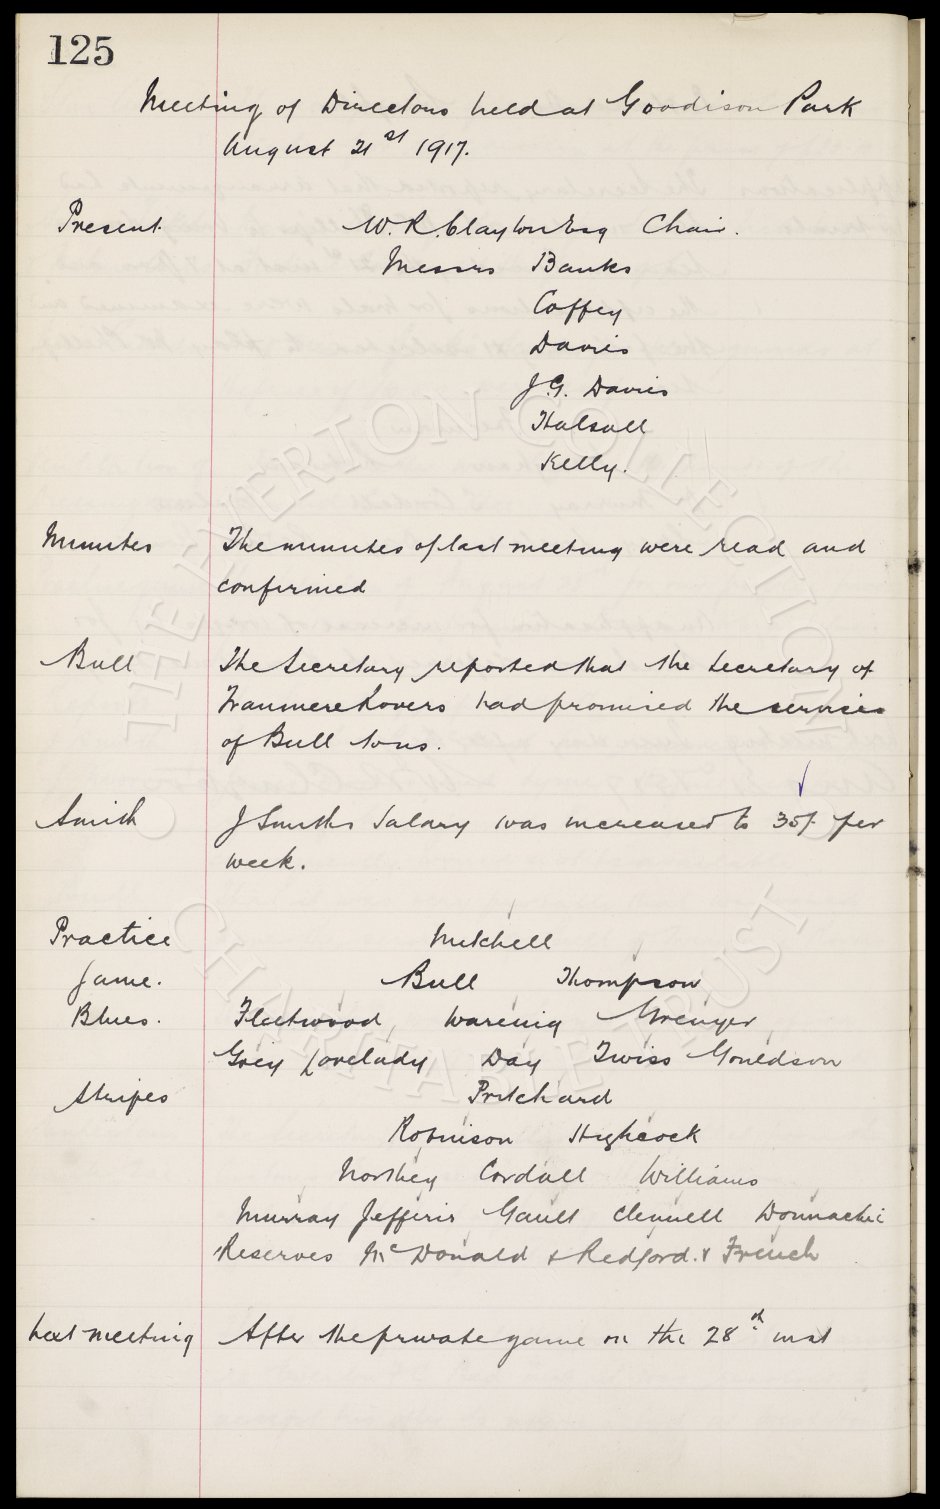 125
Meeting of Directors held at Goodison Park
August 21st 1917.
Present W. R. Clayton Esq Chair.
Messrs Banks
Coffey
Davies
J.G. Davies
Halsall
Kelly.
Minutes The minutes of last meeting were read and
confirmed
Bull The Secretary reported that the Secretary of
Tranmere Rovers had promised the services
of Bull to us.
Smith J Smiths Salary was increased to 30/- per
week.
Practice Mitchell
Game. Bull Thompson
Blues. Fleetwood Wareing Grenyer
Grey Lovelady Day Twiss Gouldson
Stripes Pritchard
Robinson Highcock
Northey Cordall Williams
Murray Jefferis Gault Clennell Donnachie
Reserves McDonald & Redford. & French
Next meeting After the private game on the 28th inst
THE EVERTON COLLECTION
CHARITABLE TRUST